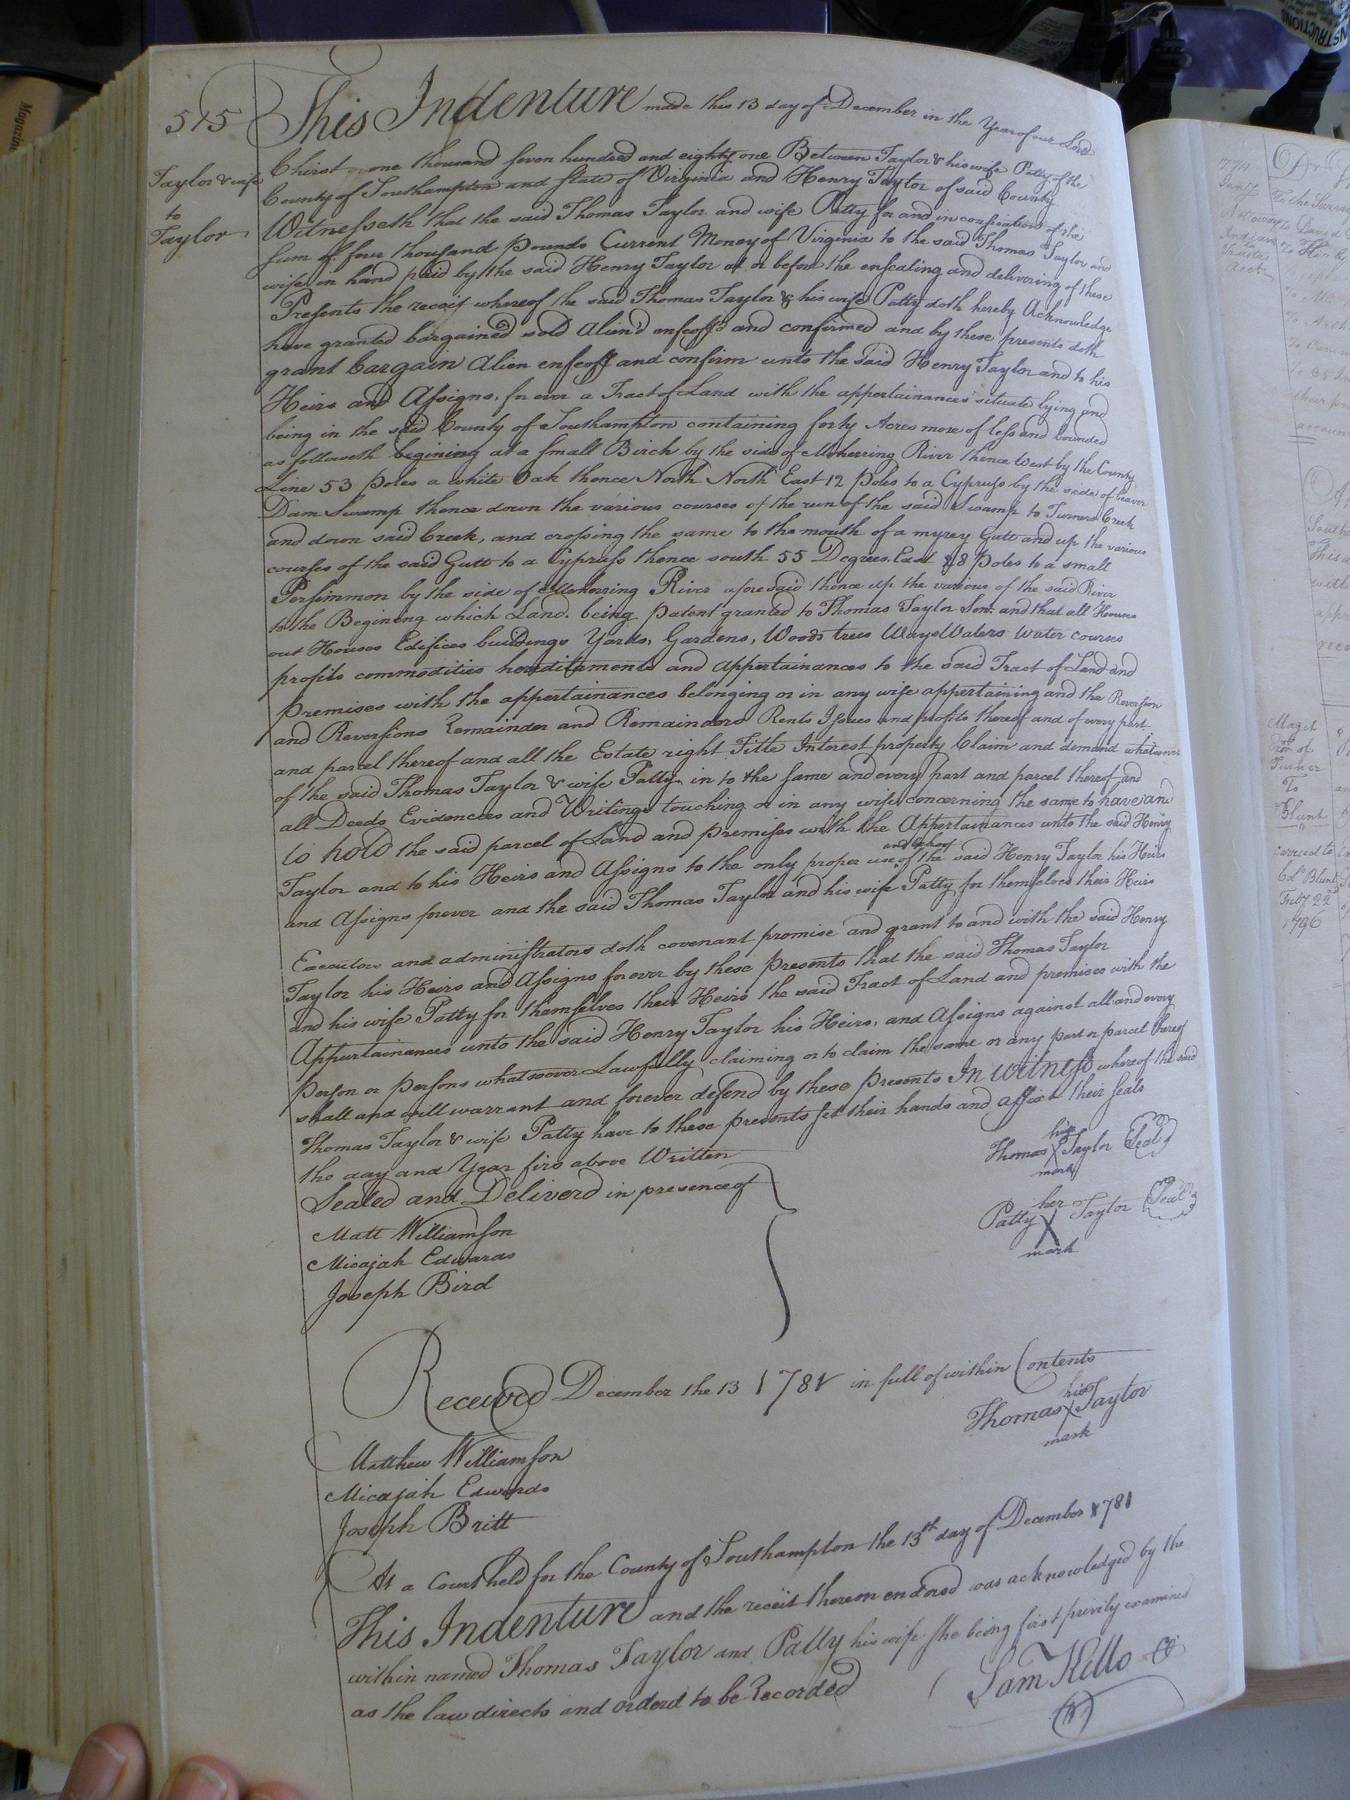 515
Taylor & wife
to
Taylor
This Indenture made this 13 day of December in the Year of our Lord
Christ one thousand seven hundred and eighty one Between Taylor & his wife Patty of the
County of Southampton and State of Virginia and Henry Taylor of said County
Witnesseth that the said Thomas Taylor and wife Patty for and in consideration of the
sum of four thousand pounds Current Money of Virginia to the said Thomas Taylor and
wife in hand paid by the said Henry Taylor at or before the ensealing and delivering of these
Presents the receit whereof the said Thomas Taylor & his wife Patty doth hereby Acknowledge
have granted bargained sold Alien'd enfeoff'd and confirmed and by these presents doth
grant bargain Alien enfeoff and confirm unto the said Henry Taylor and to his
Heirs and Assigns, for ever a Tract of Land with the appertainances situate lying and
being in the said County of Southampton containing forty Acres more of less and bounded
as followeth begining at a small Birch by the side of Meherring River thence West by the County
Line 53 poles a white Oak thence North North East 12 Poles to a Cypruss by the side of beaver
Dam Swamp thence down the various courses of the run of the said Swamp to Turners Creek
and down said Creek, and crossing the same to the mouth of a myrey Gutt and up the various
courses of the said Gutt to a Cypruss thence south 55 Degrees East 8 Poles to a small
Persimmon by the side of Meherring River afore said thence up the various of the said River
to the Begining which Land being patent granted to Thomas Taylor Senr and that all Houses
out Houses Edifices buildings Yards, Gardens, Woods trees Ways Waters water courses
profits commodities hereditaments and appertainances to the said Tract of Land and
premises with the appertainances belonging or in any wise appertaining and the Reversion
and Reversions Remainder and Remainders Rents Issues and profits thereof and of every part
and parcel thereof and all the Estate right Title Interest property Claim and demand whatsoever
of the said Thomas Taylor & wife Patty in to the same and every part and parcel thereof and
all Deeds Evidences and Writings touching or in any wise concerning the same to have and
to hold the said parcel of Land and premises with the Appertainances unto the said Henry
Taylor and to his Heirs and Assigns to the only proper use and behoof of the said Henry Taylor his Heirs
and Assigns forever and the said Thomas Taylor and his wife Patty for themselves their Heirs
Executors and administrators doth covenant promise and grant to and with the said Henry
Taylor his Heirs and Assigns forever by these presents that the said Thomas Taylor
and his wife Patty for themselves their Heirs the said Tract of Land and premises with the
Appurtainances unto the said Henry Taylor his Heirs, and Assigns against all and every
person or persons whatsoever Lawfully claiming or to claim the same or any part or parcel thereof
shall and will warrant and forever defend by these presents In witness whereof the said
Thomas Taylor & wife Patty have to these presents set their hands and affixed their seals
the day and Year firs above Written
Sealed and Deliverd in presence of
Matt Williamson
Micajah Edwards
Joseph Bird
his
Thomas X Taylor Seal
mark
her
Patty X Taylor Seal
mark
Received December the 13 1781 in full of within Contents
his
Thomas X Taylor
mark
Matthew Williamson
Micajah Edwards
Joseph Britt
At a Court held for the County of Southampton the 13th day of December 1781
This Indenture and the receit thereon endorsd was acknowledged by the
within named Thomas Taylor and Patty his wife she being first privily examined
as the law directs and orderd to be Recorded
Sam Kello
Magit
Turner
To
Blunt
Feby 22
1796